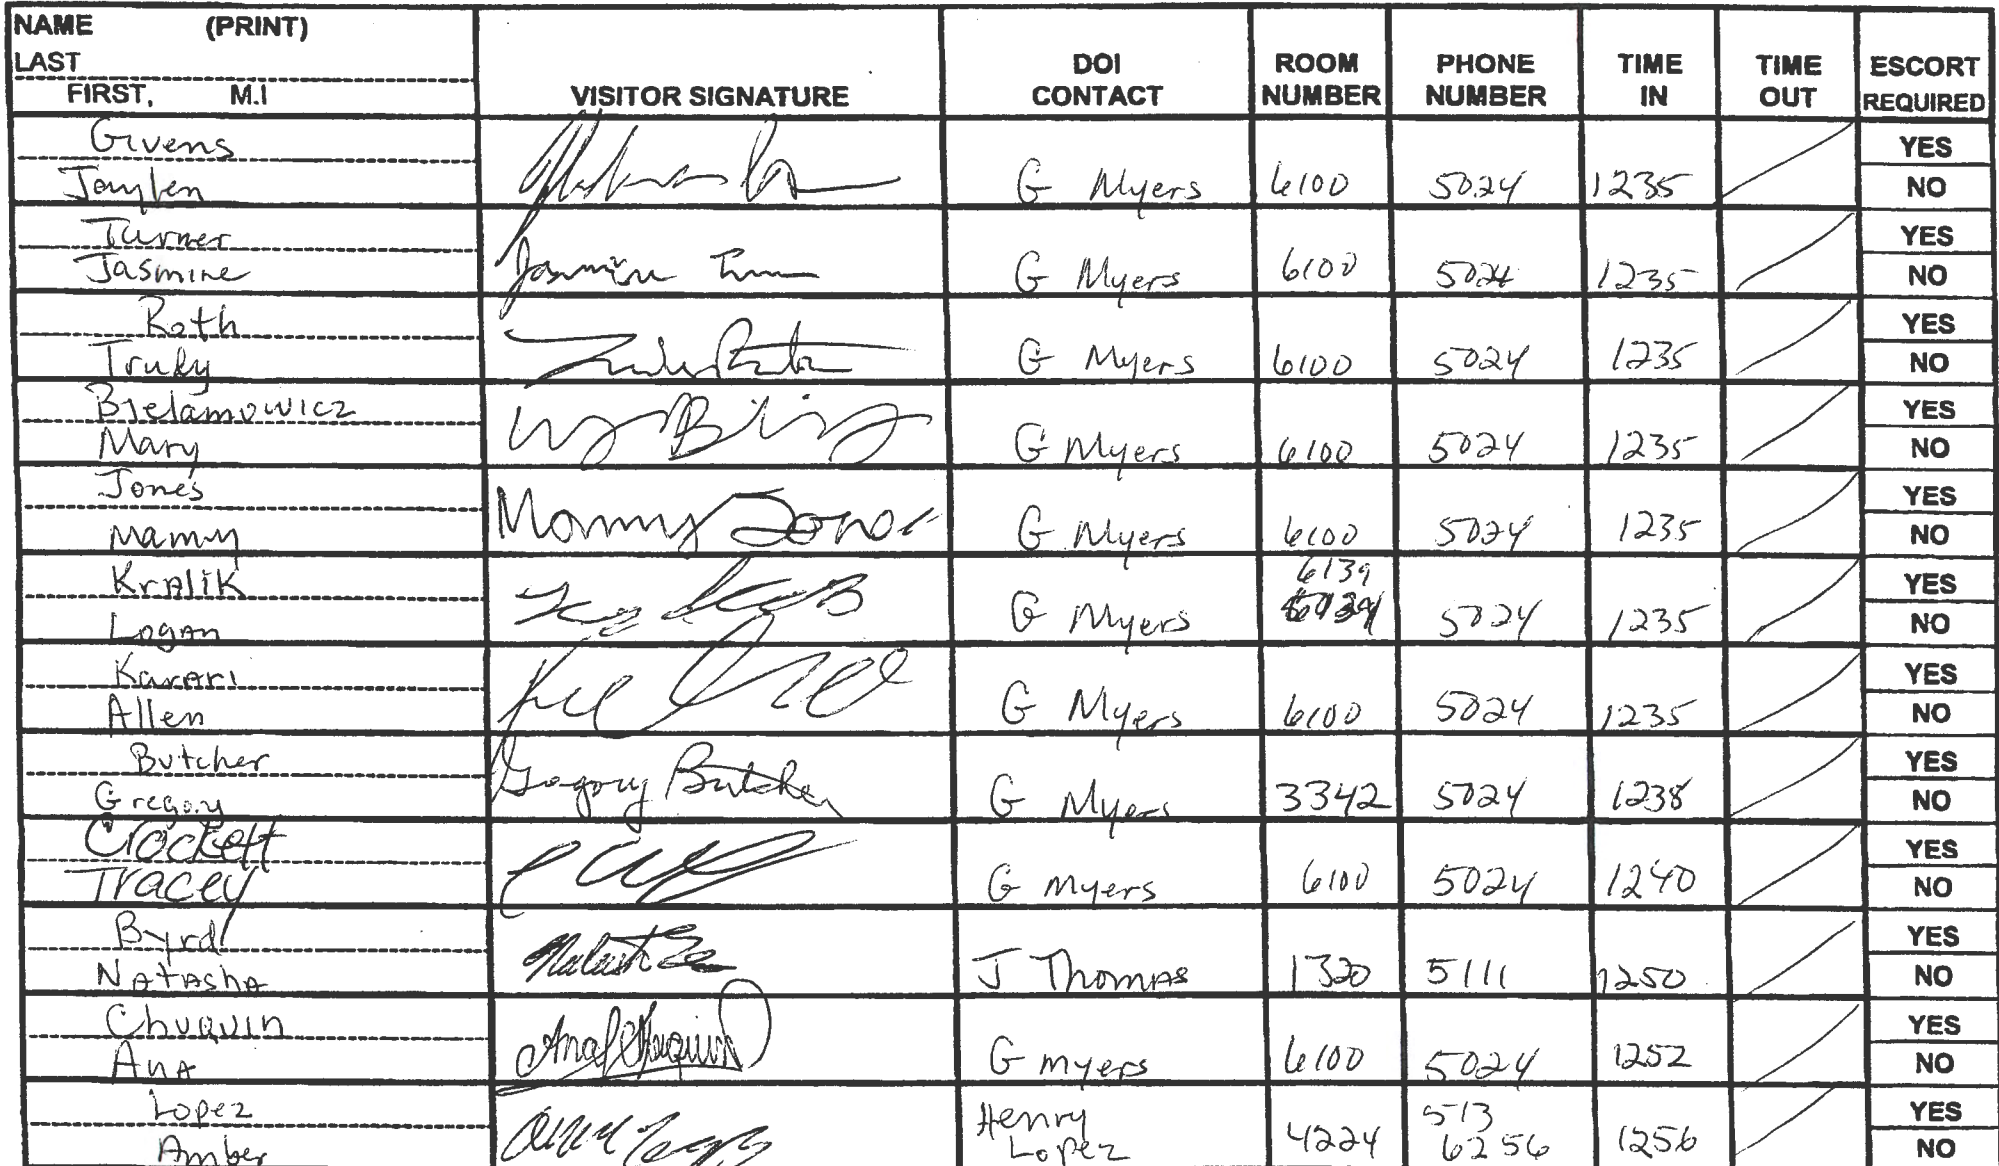 NAME (PRINT)
LAST
FIRST, M.I
VISITOR SIGNATURE
DOI CONTACT
ROOM NUMBER
PHONE NUMBER
TIME IN
TIME OUT
ESCORT REQUIRED
Givens
Jaylen
G Myers 6100 5024 1235
YES
NO
Turner
Jasmine
Jasmine
G Myers 6100 5024 1235
YES
NO
Roth
G Myers 6100 5024 1235
YES
NO
Bielamowicz
Mary
G Myers 6100 5024 1235
YES
NO
Jones
Mammy
G Myers 6100 5024 1235
YES
NO
Kralik
Logan
6139
G Myers 5024 1235
YES
NO
Karari
Allen
G Myers 6100 5024 1235
YES
NO
Butcher
Gregory
Gregory Butcher
G Myers 3342 5024 1238
YES
NO
Crockett
Tracey
G Myers 6100 5024 1240
YES
NO
Byrd
Natasha
J Thomas 1320 5111 1250
YES
NO
Chuquin
Ana
G Myers 6100 5024 1252
YES
NO
Lopez
Amber
Henry Lopez
4224
513
6256
1256
YES
NO